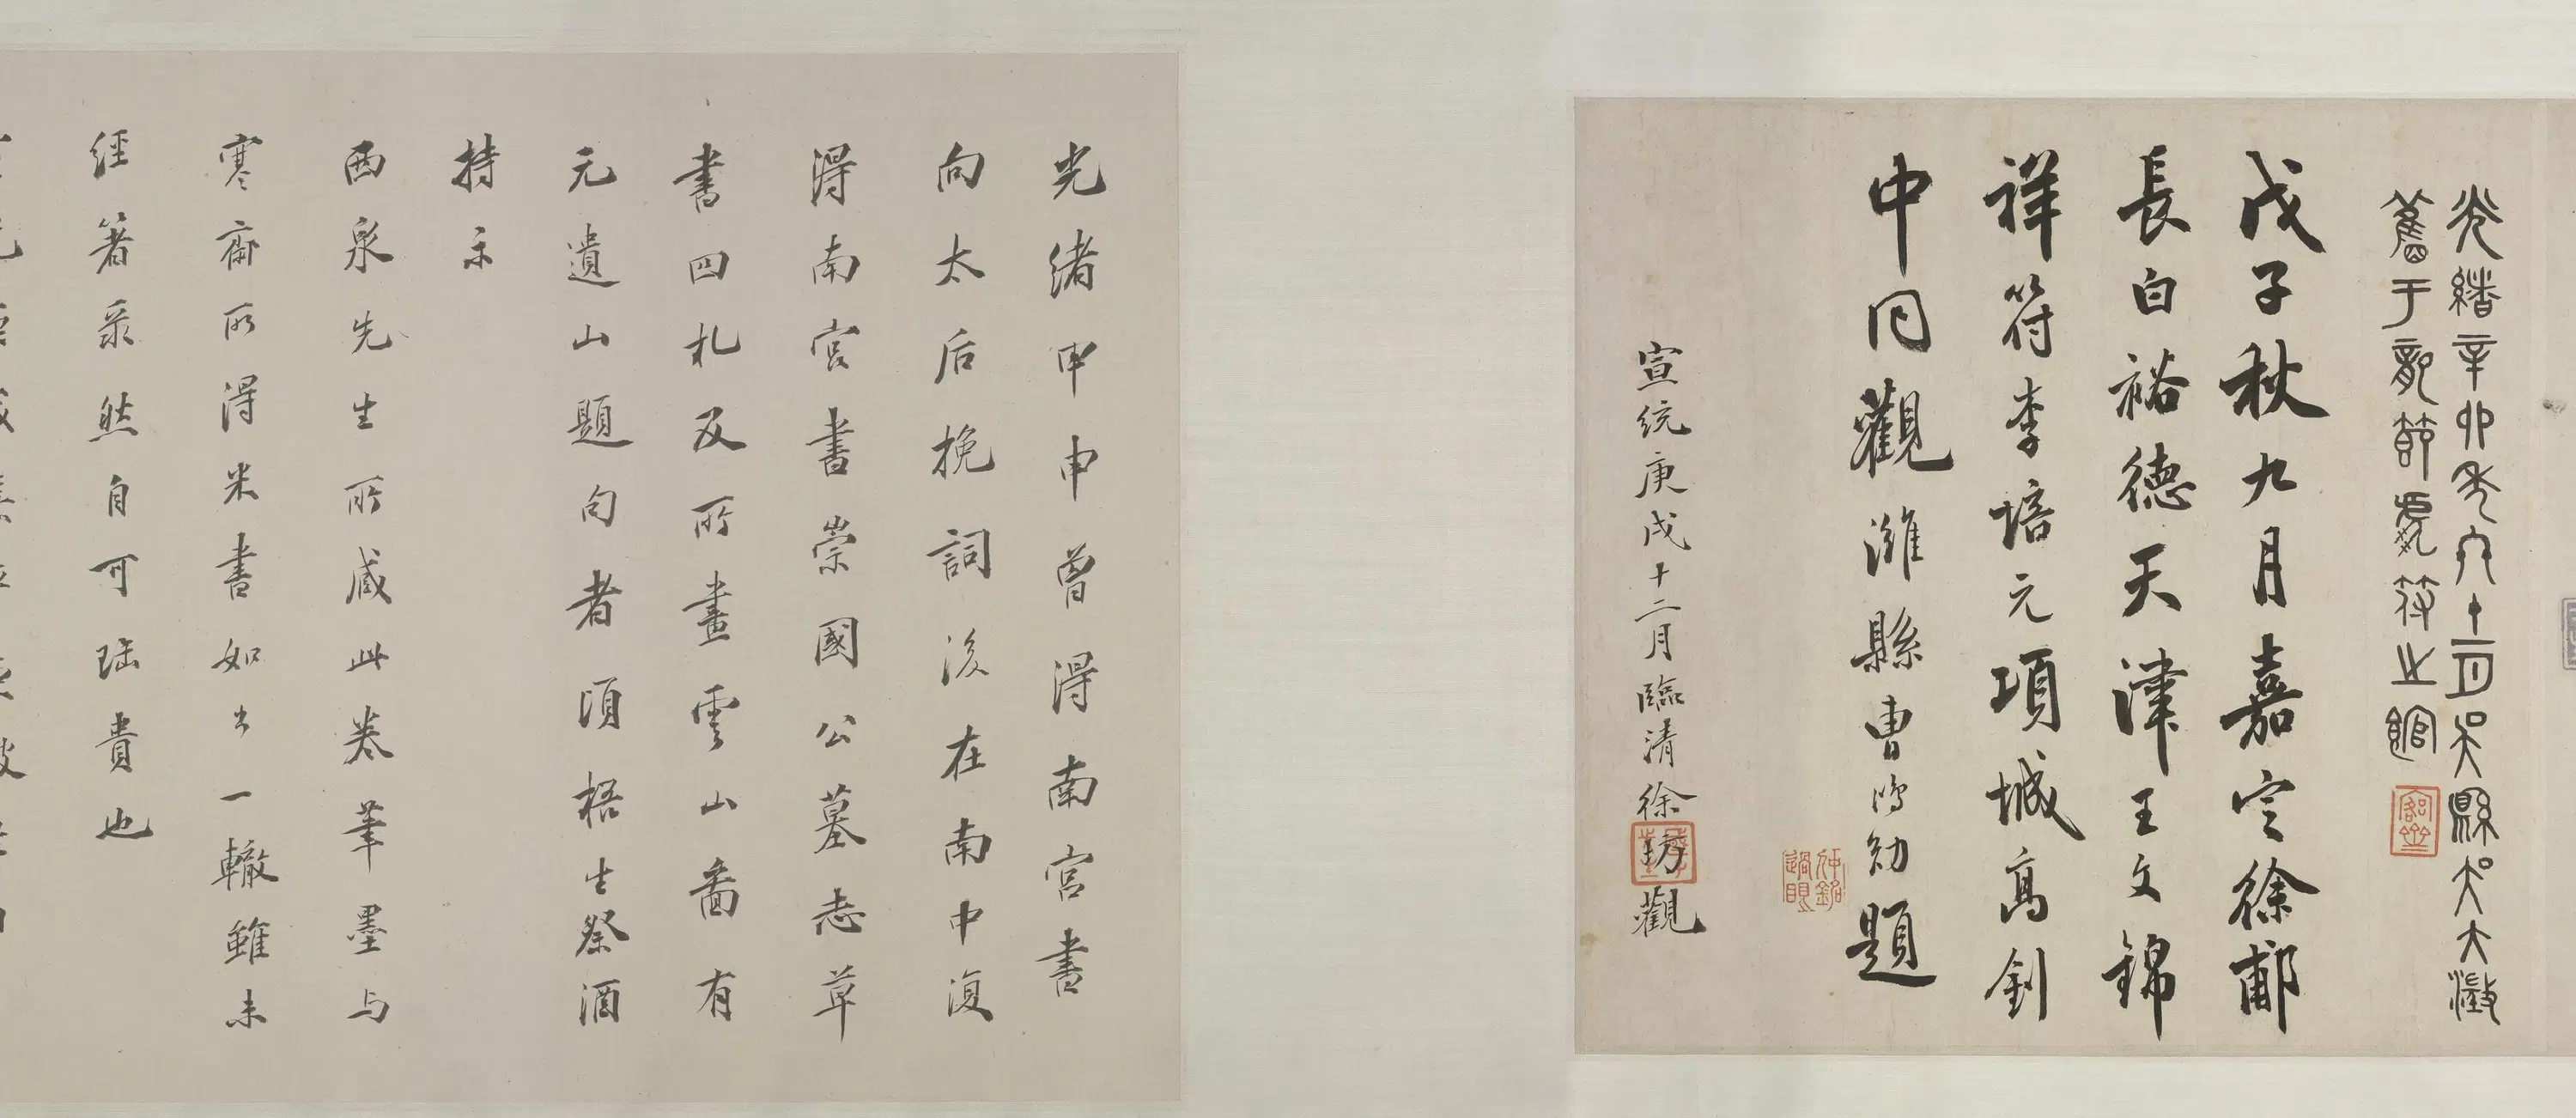 光緒辛卯季穴十二月吳縣吳大澂
舊于龍節虎符之館
戊子秋九月嘉定徐郙
長白裕德天津王文錦
祥符李培元項城高釗
中同觀濰縣曹鴻勛題
宣統庚戌十二月臨清徐坊觀
光緒甲申曾得南宮書
向太后挽詞後在南中復
得南宮書崇國公墓志草
書四札及所畫雲山圖有
元遺山題句者頃梧生祭酒
持示
西泉先生所藏此卷筆墨与
寒齋所得米書如出一轍雖未
經著录然自可珤貴也